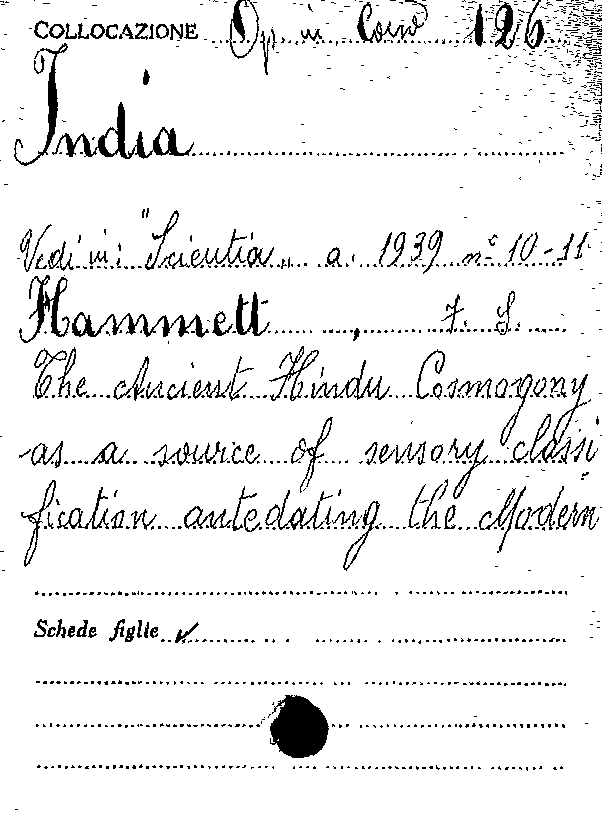 COLLOCAZIONE Op. in Cons 126
India
Vedi in: "Scientia„ a. 1939 n° 10-11
Hammett, F. S.
The Ancient Hindu Cosmogony
as a source of sensory classi
fication antedating the Modern
Schede figlie ✓